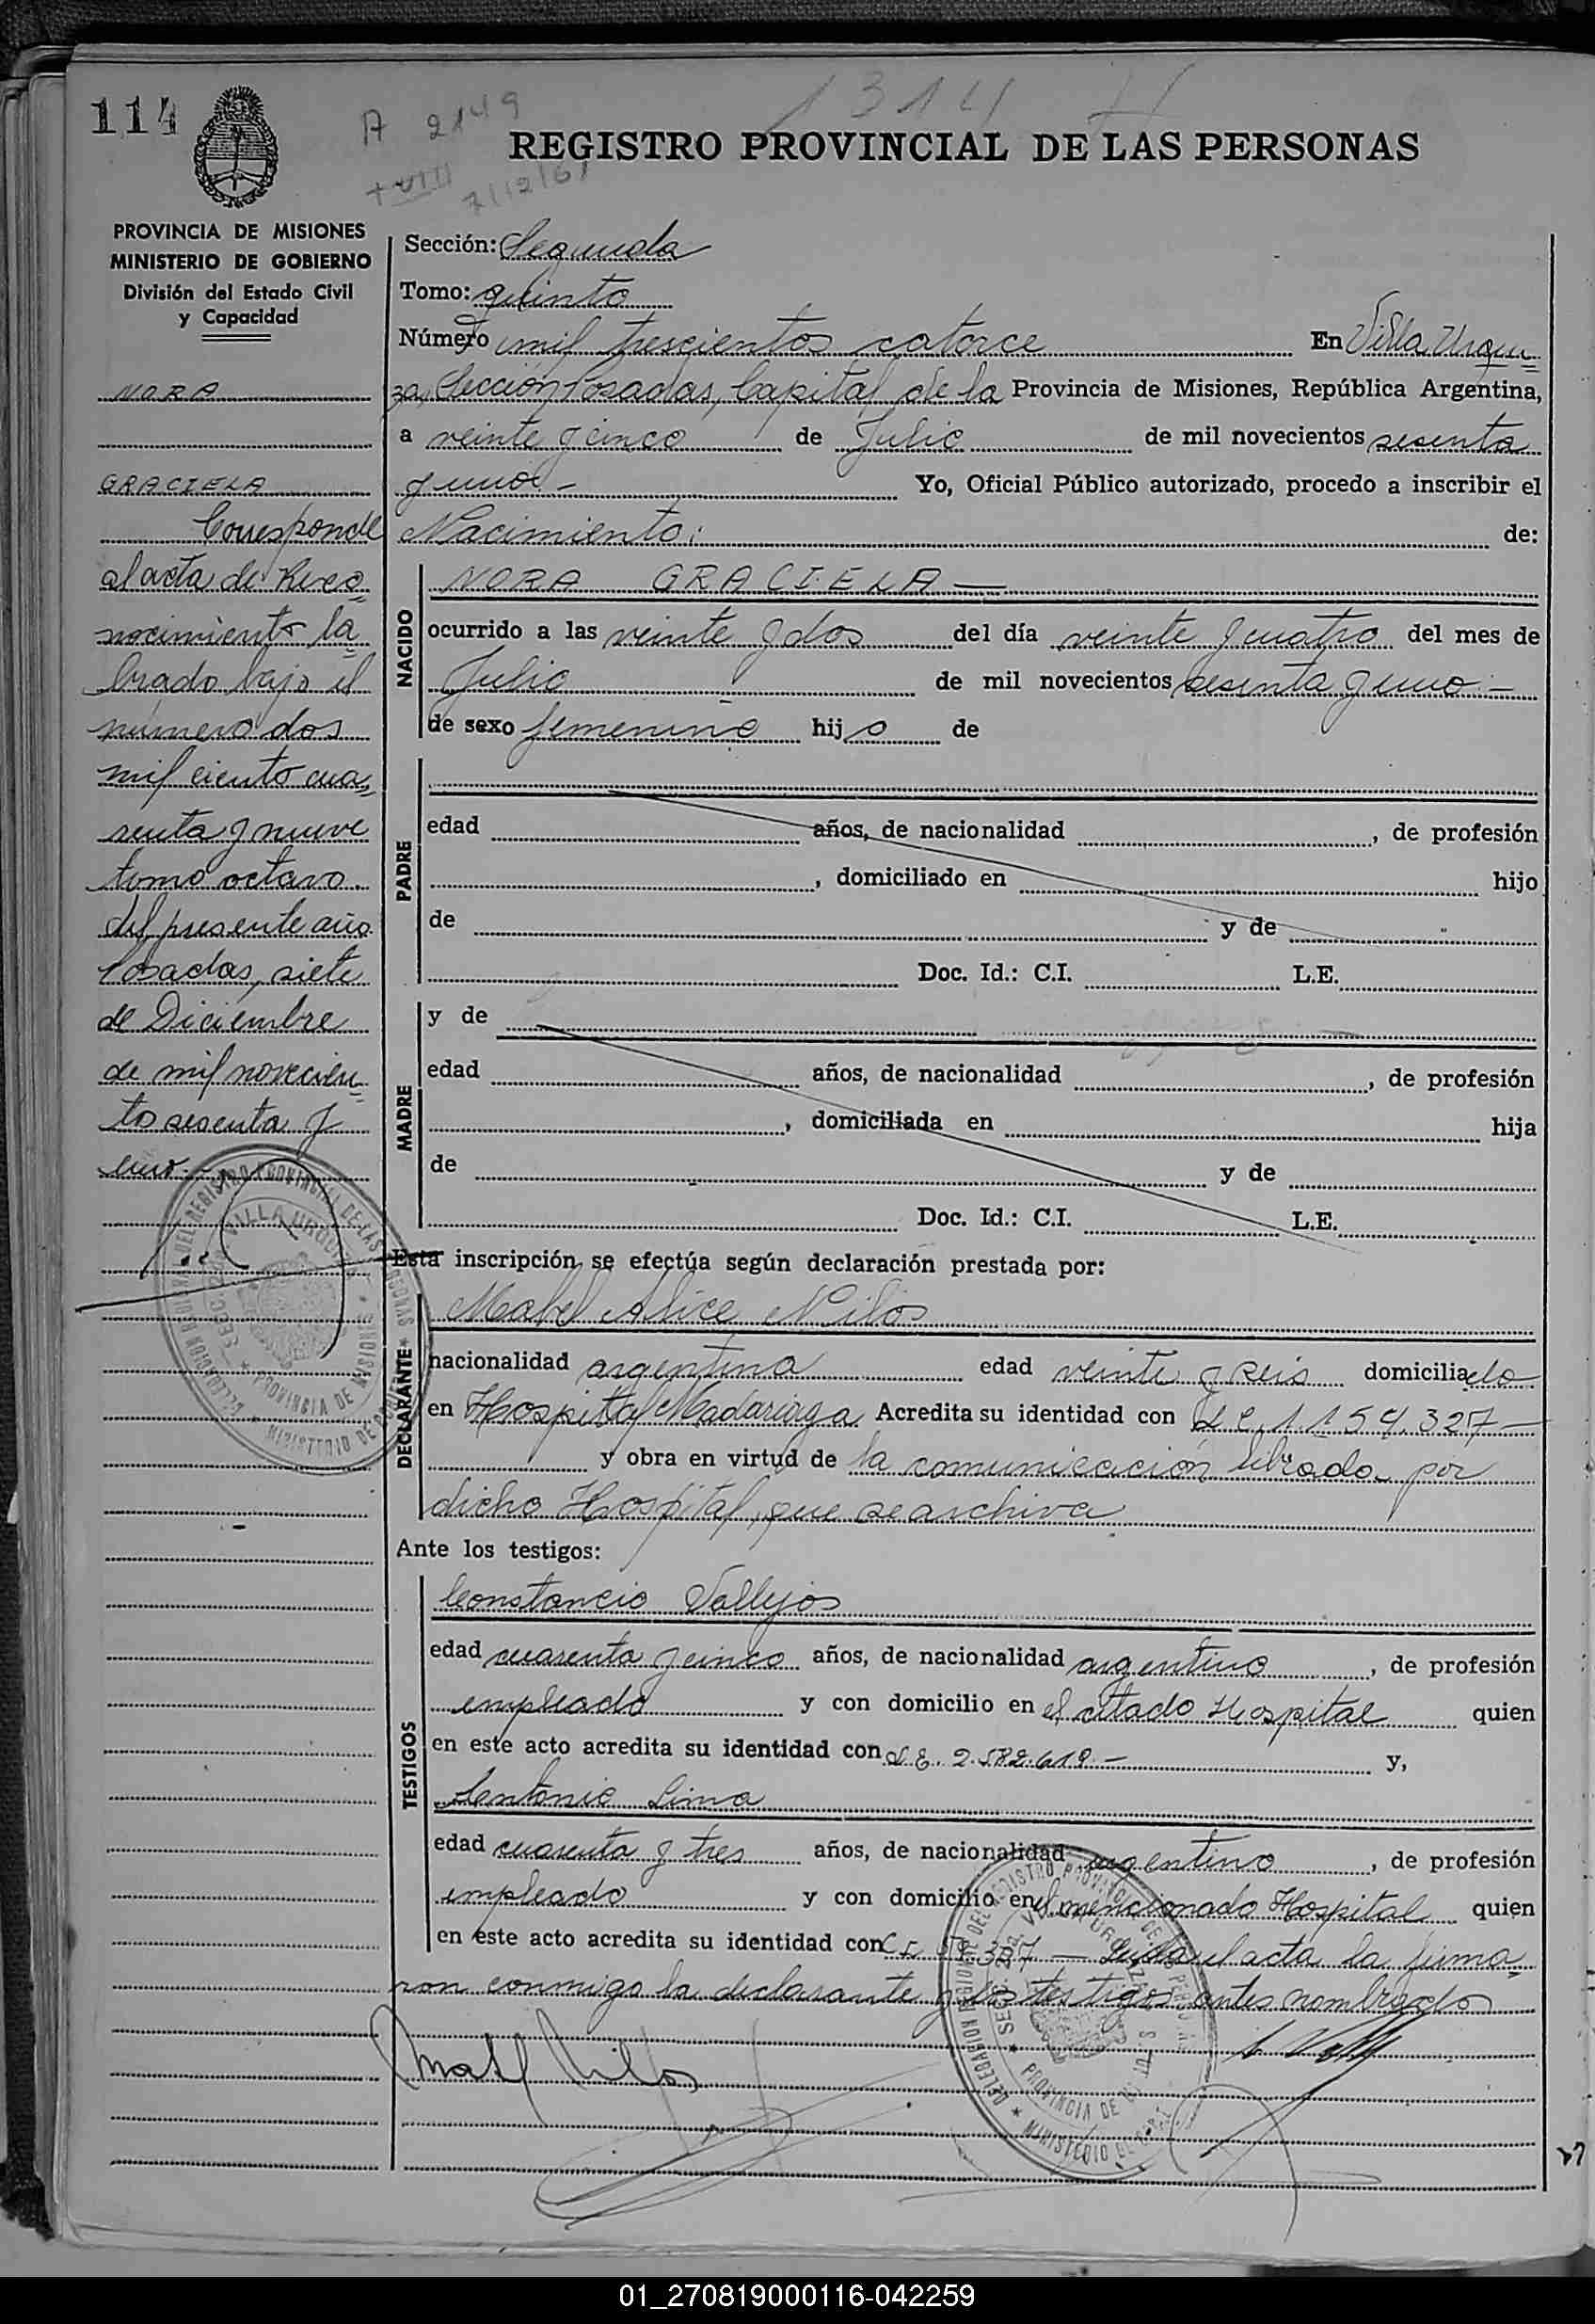 114
A 2149
1314
T VIII
7/12/61
REGISTRO PROVINCIAL DE LAS PERSONAS
PROVINCIA DE MISIONES
MINISTERIO DE GOBIERNO
División del Estado Civil
y Capacidad
NORA
GRACIELA
Corresponde
al acta de Reco
nocimiento la
brado bajo el
número dos
mil ciento cua
renta y nueve
tomo octavo
del presente año
Posadas, siete
de Diciembre
de mil novecien
to sesenta y
uno.-
Sección: Segunda
Tomo: quinto
Número mil trescientos catorce En Villa Urqui
za, Sección Posadas, Capital de la Provincia de Misiones, República Argentina,
a veinte y cinco de Julio de mil novecientos sesenta
y uno.- Yo, Oficial Público autorizado, procedo a inscribir el
Nacimiento: de:
NACIDO
NORA GRACIELA—
ocurrido a las veinte y dos del día veinte y cuatro del mes de
Julio de mil novecientos sesenta y uno.-
de sexo femenino hijo de
PADRE
edad años, de nacionalidad , de profesión
, domiciliado en hijo
de y de
Doc. Id.: C.I. L.E.
MADRE
y de
edad años, de nacionalidad , de profesión
, domiciliada en hija
de y de
Doc. Id.: C.I. L.E.
Esta inscripción se efectúa según declaración prestada por:
DECLARANTE
Mabel Alice Nilos
nacionalidad argentina edad veinte y seis domiciliado
en Hospital Madariaga Acredita su identidad con L.C. 1.154.327—
y obra en virtud de la comunicación librada por
dicho Hospital, que se archiva
Ante los testigos:
TESTIGOS
Constancio Vallejos
edad cuarenta y cinco años, de nacionalidad argentino , de profesión
empleado y con domicilio en el citado Hospital quien
en este acto acredita su identidad con L.E. 2.582.619.— y,
Antonio Lima
edad cuarenta y tres años, de nacionalidad argentino , de profesión
empleado y con domicilio en el mencionado Hospital quien
en este acto acredita su identidad con C.I. 307 — Leída el acta la firma
ron conmigo la declarante y los testigos antes nombrados
Mabel Nilos
DELEGACION REGIONAL DEL REGISTRO PROVINCIAL DE LAS PERSONAS
VILLA URQUIZA
PROVINCIA DE MISIONES
01_270819000116-042259